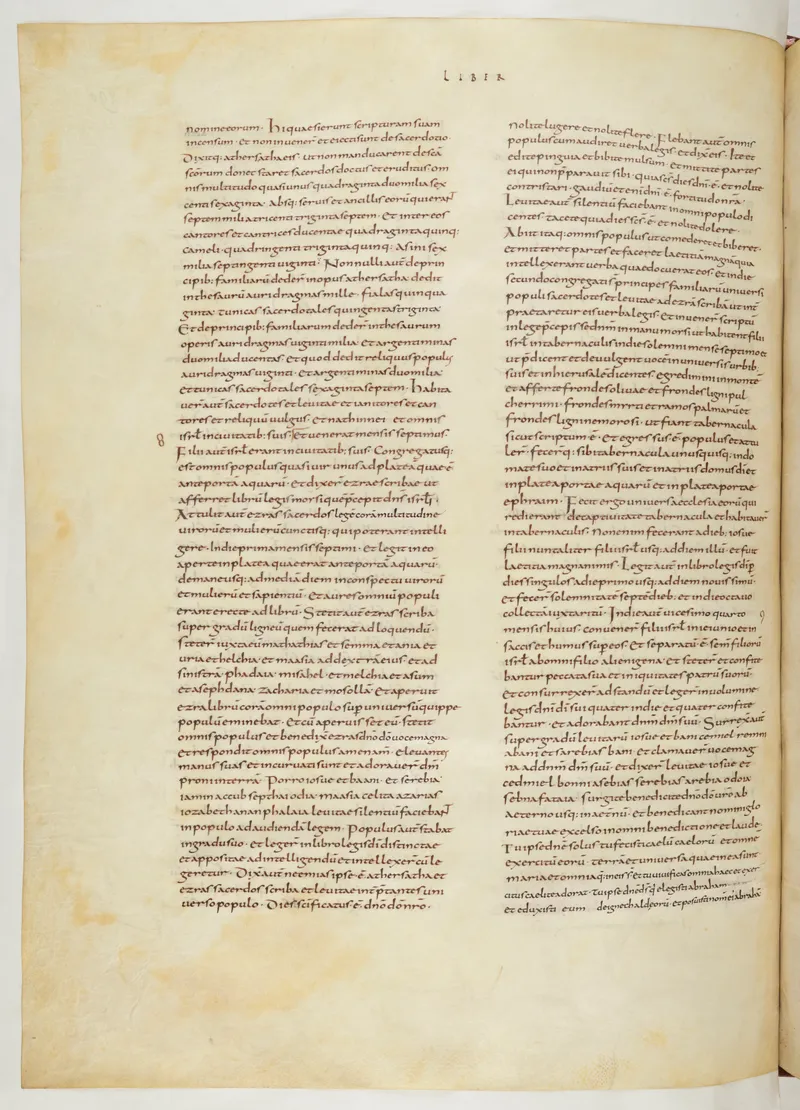 LIBER
nomine eorum · Hi quaesierunt scripturam suam
incensum · Et non inuener̄ et eiecti sunt de sacerdotio ·
Dixitq: athersatha eis · ut non manducarent de scā
scōrum donec staret sacerdos doctus et eruditus · om
nis multitudo quasi unus quadraginta duo milia sex
centi sexaginta · Absq: seruis et ancillis eorū qui erant
septem milia tricenti triginta septem · Et inter eos
cantores et cantrices ducentae quadraginta quinq:
cameli · quadringenti triginta quinq: Asini sex
milia septingenti uiginti · Nonnulli aut̄ de prin
cipib: familiarū deder̄ in opus athersatha dedit
in thesaurū auri dragmas mille · fialas quinqua
ginta · tunicas sacerdotales quingentas triginta ·
Et de principib: familiarum deder̄ in thesaurum
operis auri dragmas uiginti milia · Et argenti minas
duo milia ducentas · Et quod dedit reliquus populus
auri dragmas uiginti · Et argenti minas duo milia ·
et tunicas sacerdotales sexaginta septem · Habita
uer̄ aut̄ sacerdotes et leuitae et ianitores et can
tores et reliquū uulgus · Et nathinei · et omnis
isrl̄ in ciuitatib: suis · Et uenerat mensis septimus ·
Filii aut̄ isrl̄ erant in ciuitatib: suis · Congregatusq:
est omnis populus quasi uir unus ad plateā quae ē
ante portā aquarū · Et dixer̄ ezrae scribae ut
afferret librū legis mosi quē p̄cepit dn̄s isrl̄i ·
Attulit aut̄ ezras sacerdos legē corā multitudine
uirorū et mulierū cunctisq: qui poterant intelli
gere · In die prima mensis septimi · Et legit in eo
aperte in platea quae erat ante portā aquarū ·
de mane usq: ad mediā diem in conspectu uirorū
et mulierū et sapientiū · Et aures omniū populi
erant erecte ad librū · Stetit aut̄ ezras scriba
super gradū ligneū quem fecerat ad loquendū ·
steter̄ iuxta eū mathathias et semma et ania et
uria et helchia · et maasia ad dextrā eius · et ad
sinistrā · phadaia · misahel · et melchia et asum
et aseph dana · zacharia et mosollā · Et aperuit
ezra librū corā omni populo sup̄ uniuersū quippe
populū eminebat · Et cū aperuisset eū · stetit
omnis populus et benedixit ezras dn̄o dō uoce magna
et respondit omnis populus amen am̄ · eleuantes
manus suas et incuruati sunt et adorauer̄ dm̄
proni in terrā · Porro iosue et baani · et serebia
iamin accub septhai odia · maasia celita azarias
iozabeth anan phalaia leuitae silentiū faciebant
in populo ad audiendā legem · Populus aut̄ stabat
in gradu suo · et leger̄ in libro legis dī distinctae
et appositae ad intelligendū et intellexer̄ cū le
geretur · Dixit aut̄ neemias ipse · ē athersatha et
ezras sacerdos scriba et leuitae int̄p̄tantes uni
uerso populo · Dies sc̄ificatus · ē · dn̄o dō nr̄o ·
nolite lugere et nolite flere · Flebant aut̄ omnis
populus cum audiret uerba legis · et dixit eis · Ite et
edite pinguia et bibite mulsum · et mittite partes
ei qui non p̄parauit sibi · quia scs̄ dies dn̄i · ē · et nolite
contristari · gaudiū etenī dn̄i · ē · fortitudo nr̄a ·
Leuitae aut̄ silentiū faciebant in omni populo di
centes · tacete quia dies scs̄ · ē · et nolite dolere ·
Abiit itaq: omnis populus ut comederet et biberet ·
et mitteret partes et faceret laetitiā magnā quia
intellexerant uerba quae docuerat eos · et in die
secundo congregati s̄ principes familiarū uniuersi
populi sacerdotes et leuitae ad ezrā scribā ut int̄
praetaretur eis uerba legis · Et inuener̄ scriptū
in lege p̄cepisse dn̄m in manu mosi ut habitent filii
isrl̄ in tabernaculis in die solemni mense septimo et
ut p̄dicent et deuulgent uocē in uniuersis urbib:
suis et in hierusalē dicentes · egredimini in montē
et afferte frondes oliuae et frondes ligni pul
cherrimi · frondes mirti et ramos palmarū et
frondes ligni nemorosi · ut fiant tabernacula
sicut scriptum · ē · Et egressus · ē · populus et attu
ler̄ · fecer̄q: sibi tabernacula unusquisq: in do
mate suo et in atriis suis et in atriis domus dī et
in platea portae aquarū et in platea portae
ephraim · Fecit ergo uniuersa ecclesia eorū qui
redierant de captiuitate tabernacula et habitauer̄
in tabernaculis · Non enim fecerant a dieb: iosue
filii nun taliter filii isrl̄ usq: ad diem illū · et fuit
laetitia magna nimis · Legit aut̄ in libro legis dī p̄
dies singulos a die primo usq: ad diem nouissimū ·
et fecer̄ solemnitatē septē dieb: et in die octauo
collectā iuxta ritū · In die aut̄ uicesimo quarto
mensis huius · conuener̄ filii isrl̄ in ieiunio et in
saccis et humus sup̄ eos · Et separatū · ē · sem̄ filiorū
isrl̄ ab omni filio alienigena · Et steter̄ et confite
bantur peccata sua et iniquitates patrū suorū ·
Et consurrexer̄ ad standū et leger̄ in uolumine
legis dn̄i dī sui quater in die et quater confite
bantur · et adorabant dn̄m dm̄ suū · Surrexit aut̄
super gradū leuitarū iosue et bani cemiel remni
abani et sarebias bani · Et clamauer̄ uoce mag
na ad dn̄m dm̄ suū · et dixer̄ leuitae iosue et
cedmiel bonni asebias serebias arebia odaia
sebna fataia · surgite benedicite dn̄o dō ur̄o ab
aeterno usq: in aet̄nū · et benedicant nomini glo
riae tuae excelso in omni benedictione et laude ·
Tu ipse dn̄e solus tu fecisti caelū caelorū et omnē
exercitū eorū · terrā et uniuersa quae in ea sunt
maria et omnia q: in eis s̄ et tu uiuificas omnia haec et exer
citus caeli te adorat · Tu ipse dn̄e dš qui elegisti abraham
et eduxisti eum de igne chaldeorū et posuisti nomē ei abrahā